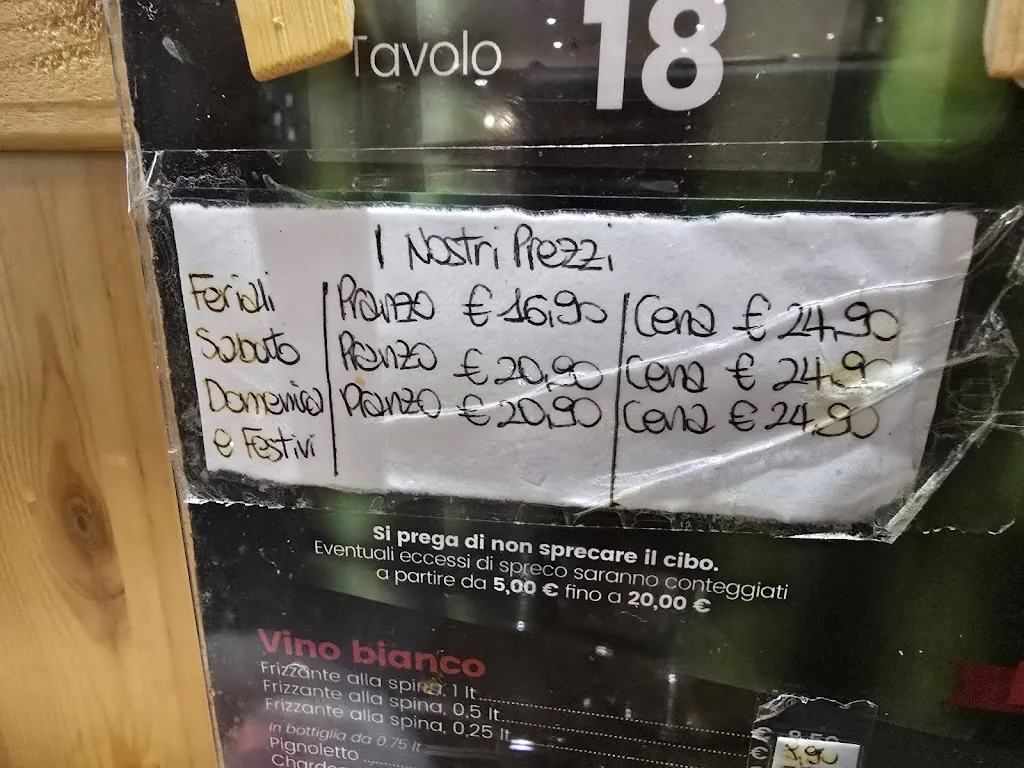 Tavolo 18
I Nostri Prezzi
Feriali Pranzo € 16,90 Cena € 24,90
Sabato Pranzo € 20,90 Cena € 24,90
Domenica Pranzo € 20,90 Cena € 24,90
e Festivi
Si prega di non sprecare il cibo.
Eventuali eccessi di spreco saranno conteggiati
a partire da 5,00 € fino a 20,00 €
Vino bianco
Frizzante alla spina, 1 lt
Frizzante alla spina, 0,5 lt
Frizzante alla spina, 0,25 lt
in bottiglia da 0.75 lt
Pignoletto